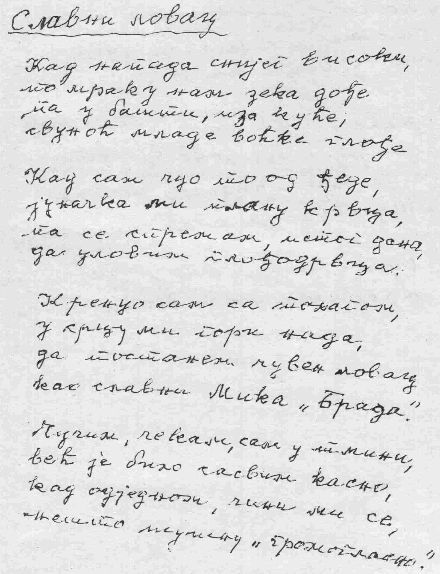 Славни ловац
Кад нападa снијег високи,
по мраку нам зека дође
па у башти, иза куће,
сву ноћ младе воћке глође
Кад сам чуо то од ђеде,
јуначка ми плану крвца,
па се спремам, истог дана,
да уловим глододрвца.
Кренуо сам са топотом,
у срцу ми гори нада,
да постанем чувен ловац
као славни Мика „Брада".
Чучим, чекам, сам у тмини,
већ је било сасвим касно,
кад одједном, чини ми се,
нешто шушну „громогласно."